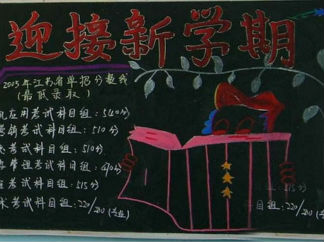 迎接新学期
2015年江苏省单招分数线
(最低录取)
机应用考试科目组:540分
营销考试科目组:510分
考试科目组:510分
管理考试科目组:490分
考试科目组:515分
术考试科目组:220/200(专业)
515分
目组:220/200(专业)